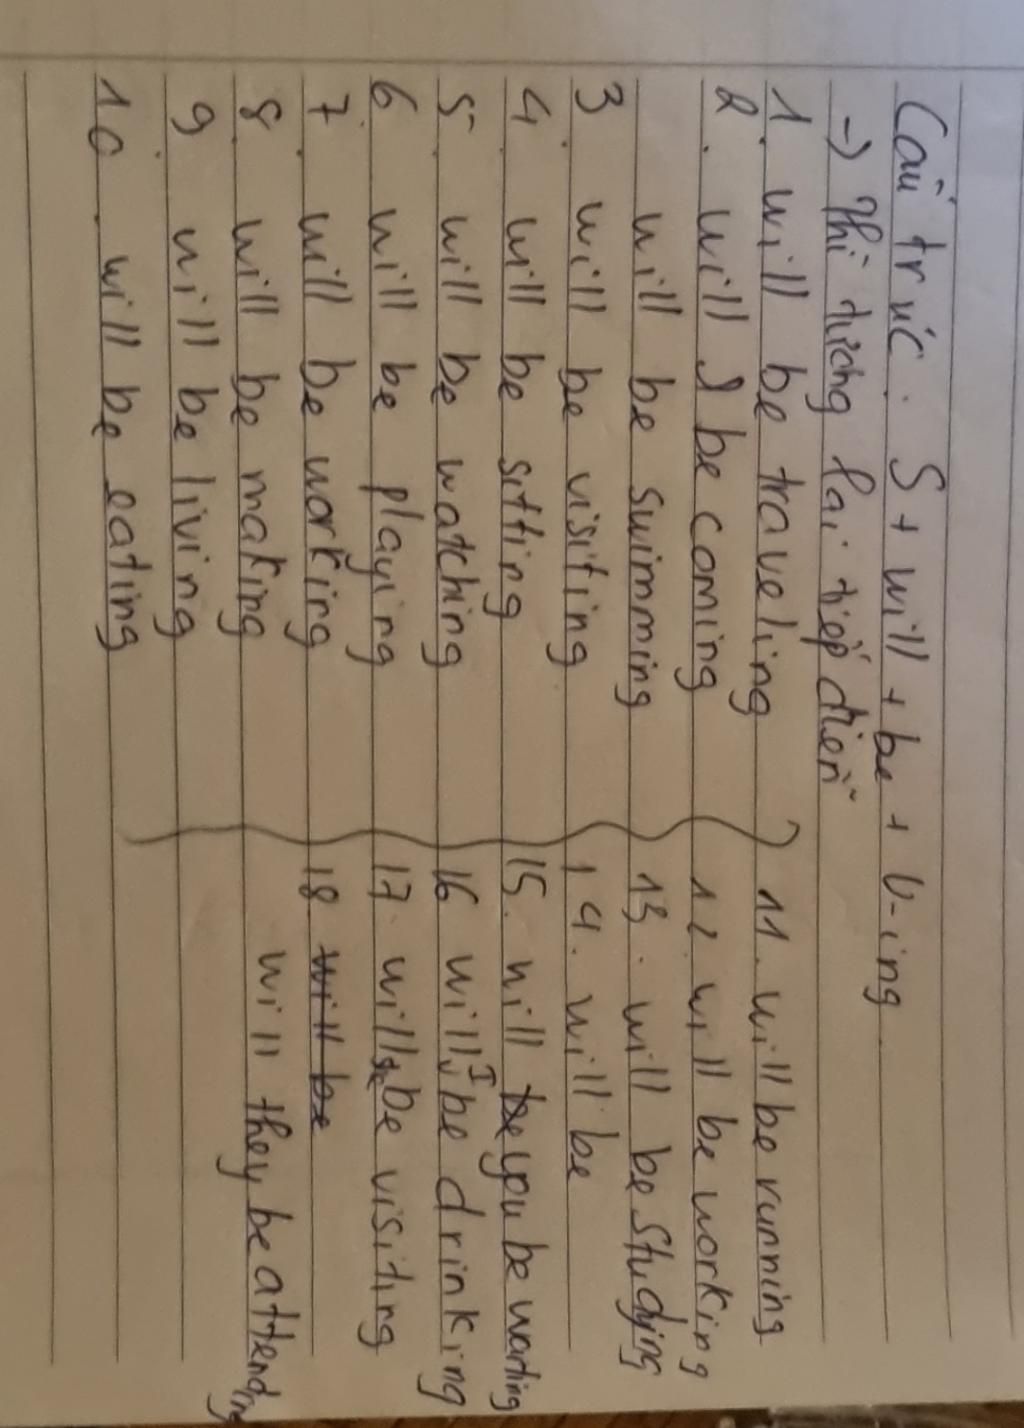 Cấu trúc. S + will + be + V-ing
→ Thì tương lai tiếp diễn
1. will be traveling
2. will I be coming
will be swimming
3. will be visiting
4. will be sitting
5. will be watching
6. will be playing
7. will be working
8. will be making
9. will be living
10. will be eating
11. will be running
12. will be working
13. will be studying
14. will be
15. will be you be waiting
16 will I be drinking
17. will be visiting
18 will be
will they be attending